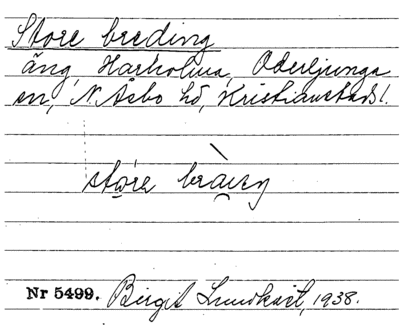 Store breding
äng, Harholma, Oderljunga
sn, N. Åsbo hd, Kristianstads l.
Nr 5499. Birgit Lundkvist, 1938.